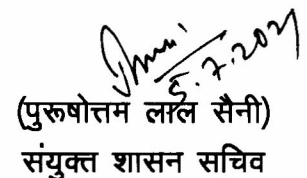 5.7.2021
(पुरूषोत्तम लाल सैनी)
संयुक्त शासन सचिव